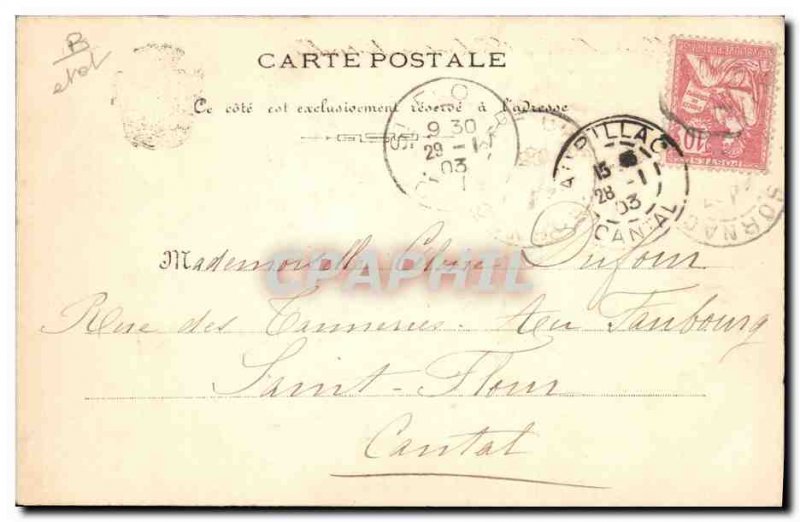 B
etat
CARTE POSTALE
Ce côté est exclusivement réservé à l'adresse
9 30
29 -1
03
AURILLAC
13
28 -1
03
CANTAL
SORNAC
10
POSTES
CPAPHIL
Mademoiselle Dufour
Rue des Tanneries. Au Faubourg
Saint-Flour
Cantal